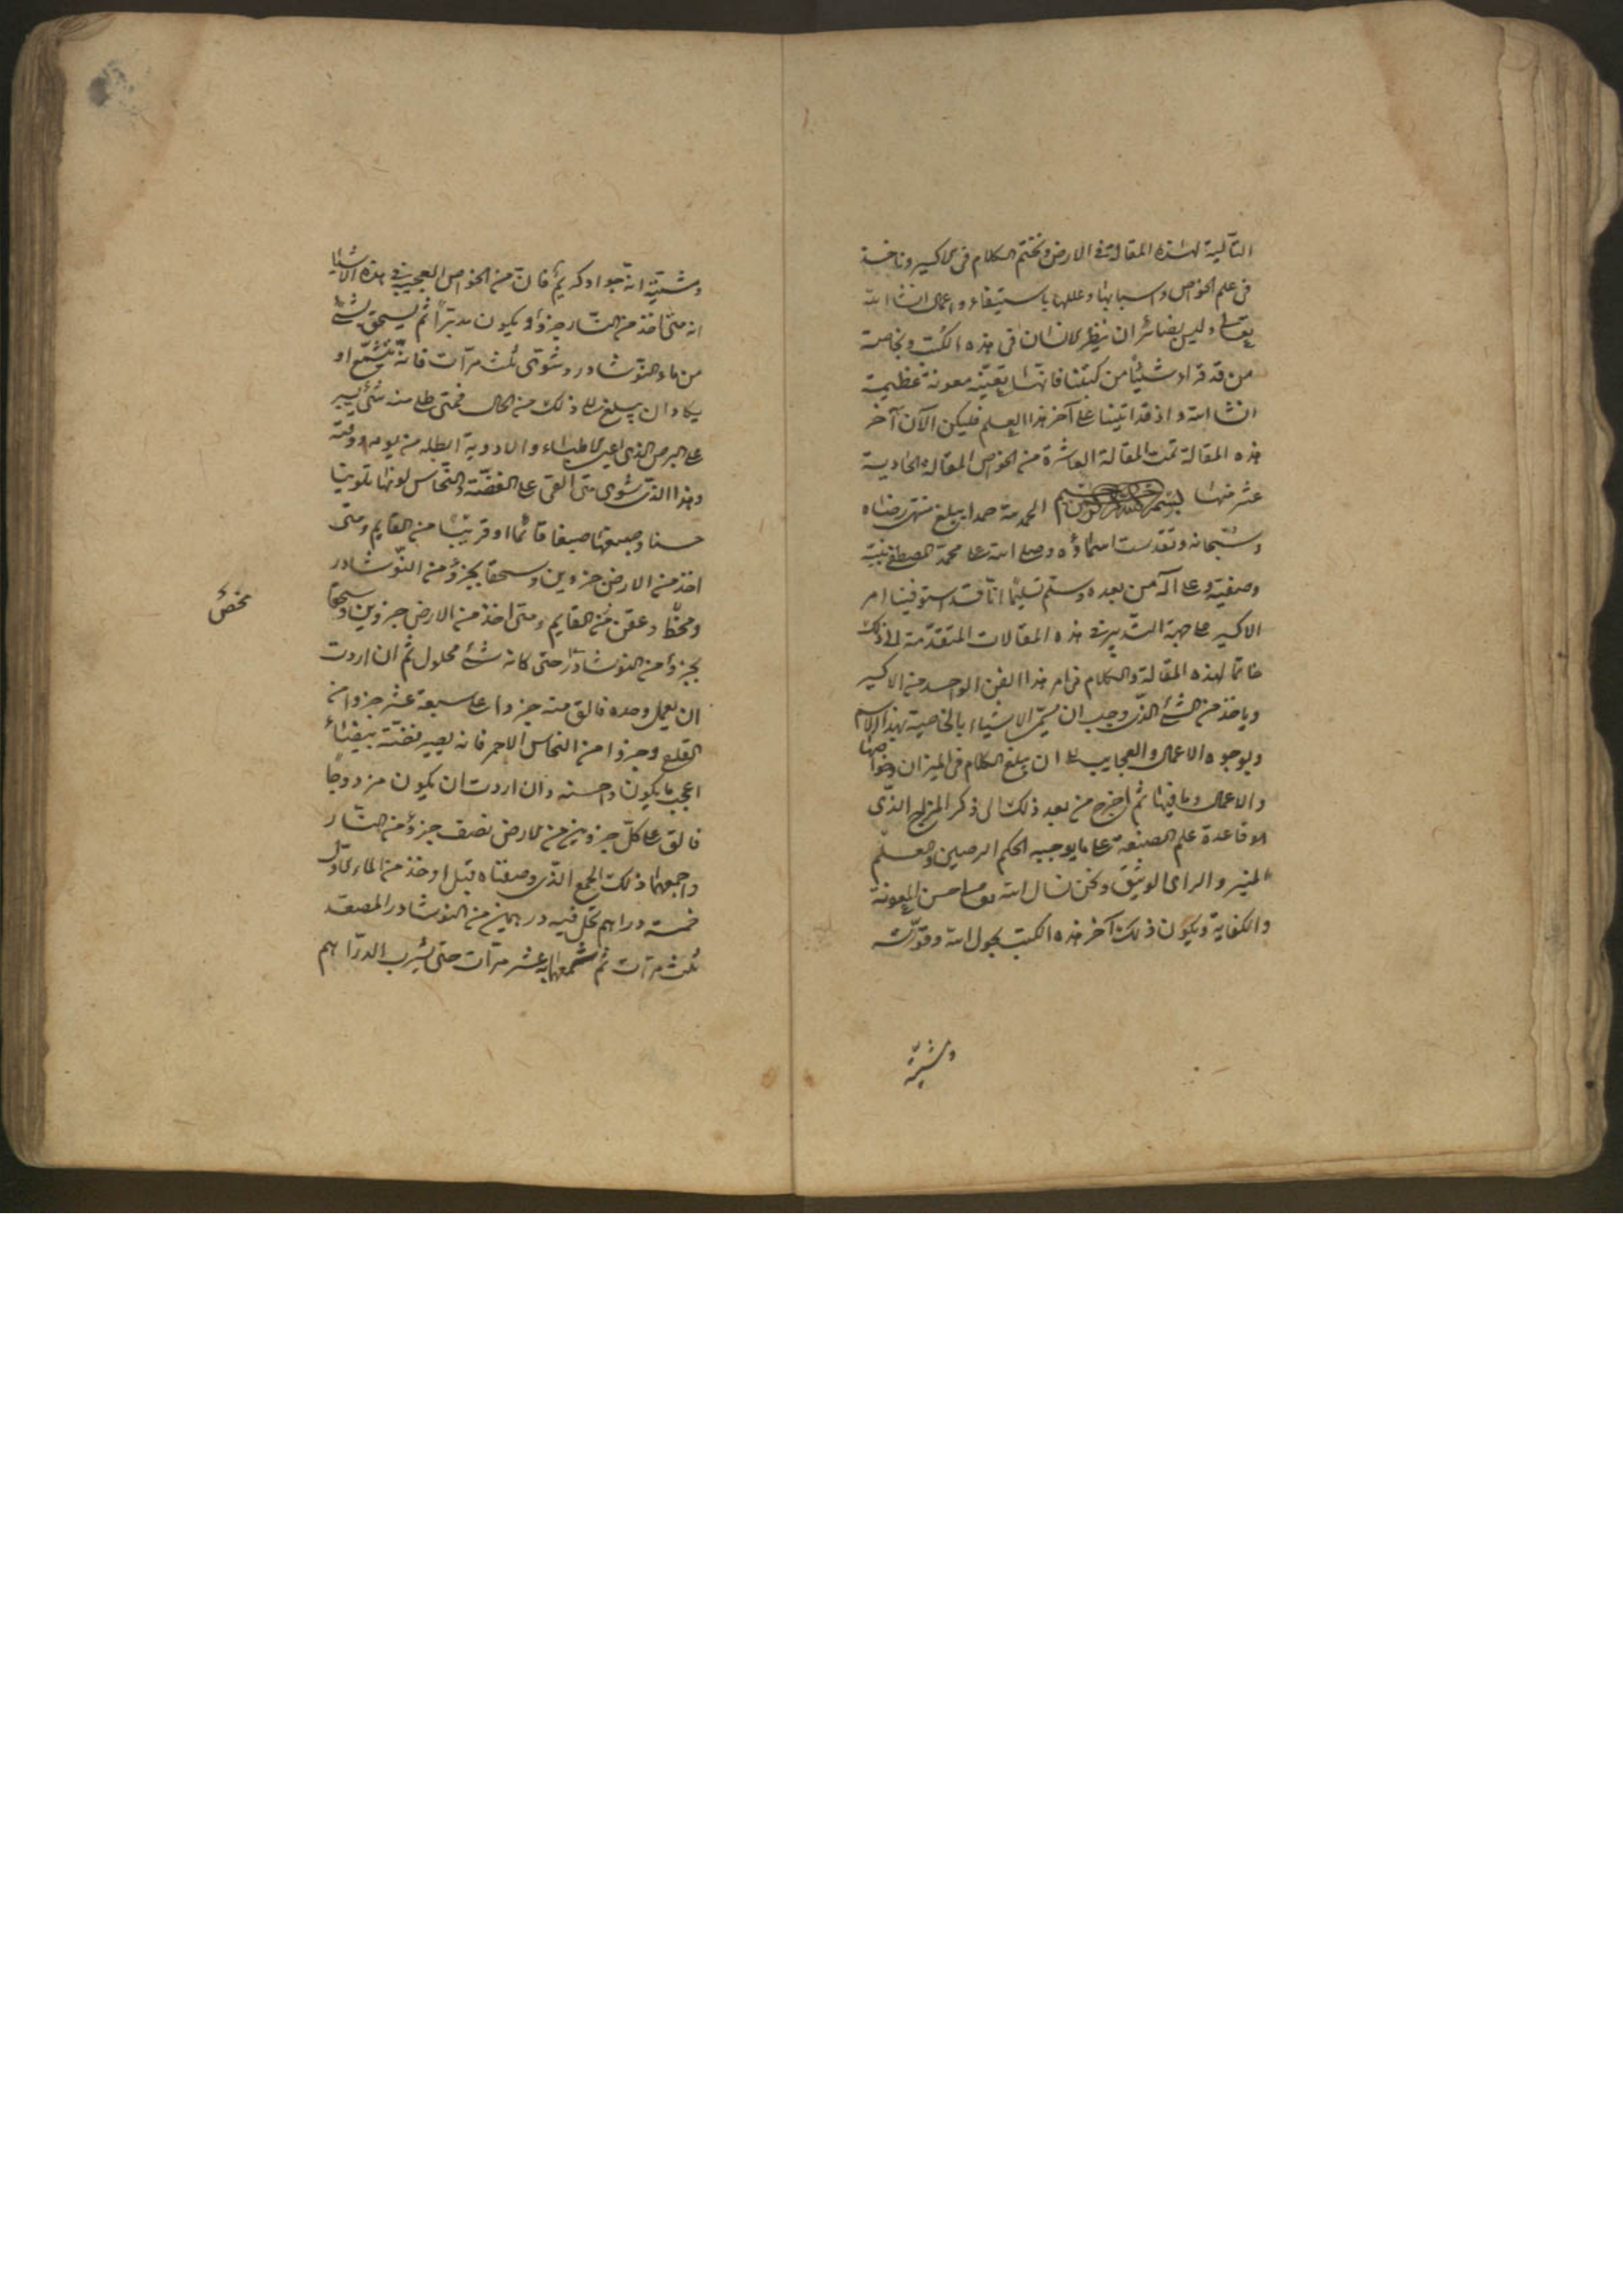 التالية لهذه المقالة في الارض ونختم الكلام في الاكسير وناخذ
في علم الخواص واسبابها وعللها باستيفاء واعمال انشا الله
تعالى وليس بضائر ان ينظر الانسان في هذه الكتب وبخاصة
من قد قراء شيئا من كتبنا فانها تعينه معونة عظيمة
انشا الله واذ قد اتينا على آخر هذا العلم فليكن الآن آخر
هذه المقالة تمت المقالة العاشرة من الخواص المقالة الحادية
عشر منها بسم الله الرحمن الرحيم الحمد لله حمدا يبلغ منتهى رضاه
وسبحانه وتقدست اسماؤه وصلى الله على محمد المصطفى نبيه
وصفيه وعلى آله من بعده وسلم تسليما انا قد استوفينا امر
الاكسير على جهة التدبير في هذه المقالات المتقدمة الى ذلك
خاتما لهذه المقالة والكلام في امر هذا الفن الواحد من الاكسير
وياخذ من الشئ الذي وجب ان يسمى الاشياء بالخاصية بهذا الاسم
وبوجوه الاعمال والعجايب الى ان يبلغ الكلام في الميزان وخواصها
والاعمال وما فيها ثم اخرج من بعد ذلك الى ذكر المزاج الذي
الا قاعدة علم الصنعة على ما يوجبه الحكم الرصين والعلم
المنير والراى الوثيق ونحن نسال الله تعالى حسن المعونة
والكفاية ويكون ذلك آخر هذه الكتب بحول الله وقوته
ومشيته
ومشيته انه جواد كريم فان من الخواص العجيبة في هذه الاشيا
انه متى اخذ من النار جزوا ويكون مدبرا ثم يسحق بشئ
من ماء النوشادر وشوى ثلث مرات فانه يتشمع او
يكاد ان يبلغ الى ذلك من الحال فمتى طلى منه شئ يسير
على البرص الذي اعيى الاطباء والادوية ابطله من يومه ووقته
وهذا الذي شوى متى القى على الفضة والنحاس لونها تلوينا
حسنا وصبغها صبغا قائما او قريبا من القايم ومتى
اخذ من الارض جزوين وسحقا بجزؤ من النوشادر
ومخض وعقن من القايم ومتى اخذ من الارض جزوين وسحقا
بجزؤ من النوشادر حتى كانه شئ محلول ثم ان اردت
ان يعمل وحده فالق منه جزوا على سبعة عشر جزوا من
القلع وجزوا من النحاس الاحمر فانه يصير فضة بيضاء
اعجب ما يكون واحسنه وان اردت ان يكون مزدوجا
فالق على كل جزوين من الارض نصف جزؤ من النار
واجمعهما ذلك الجمع الذي وصفناه قبل اوخذ من الماء الاول
خمسة دراهم تحل فيه درهمين من النوشادر المصعد
ثلث مرات ثم شمعها به عشر مرات حتى يشرب الدراهم
مخض